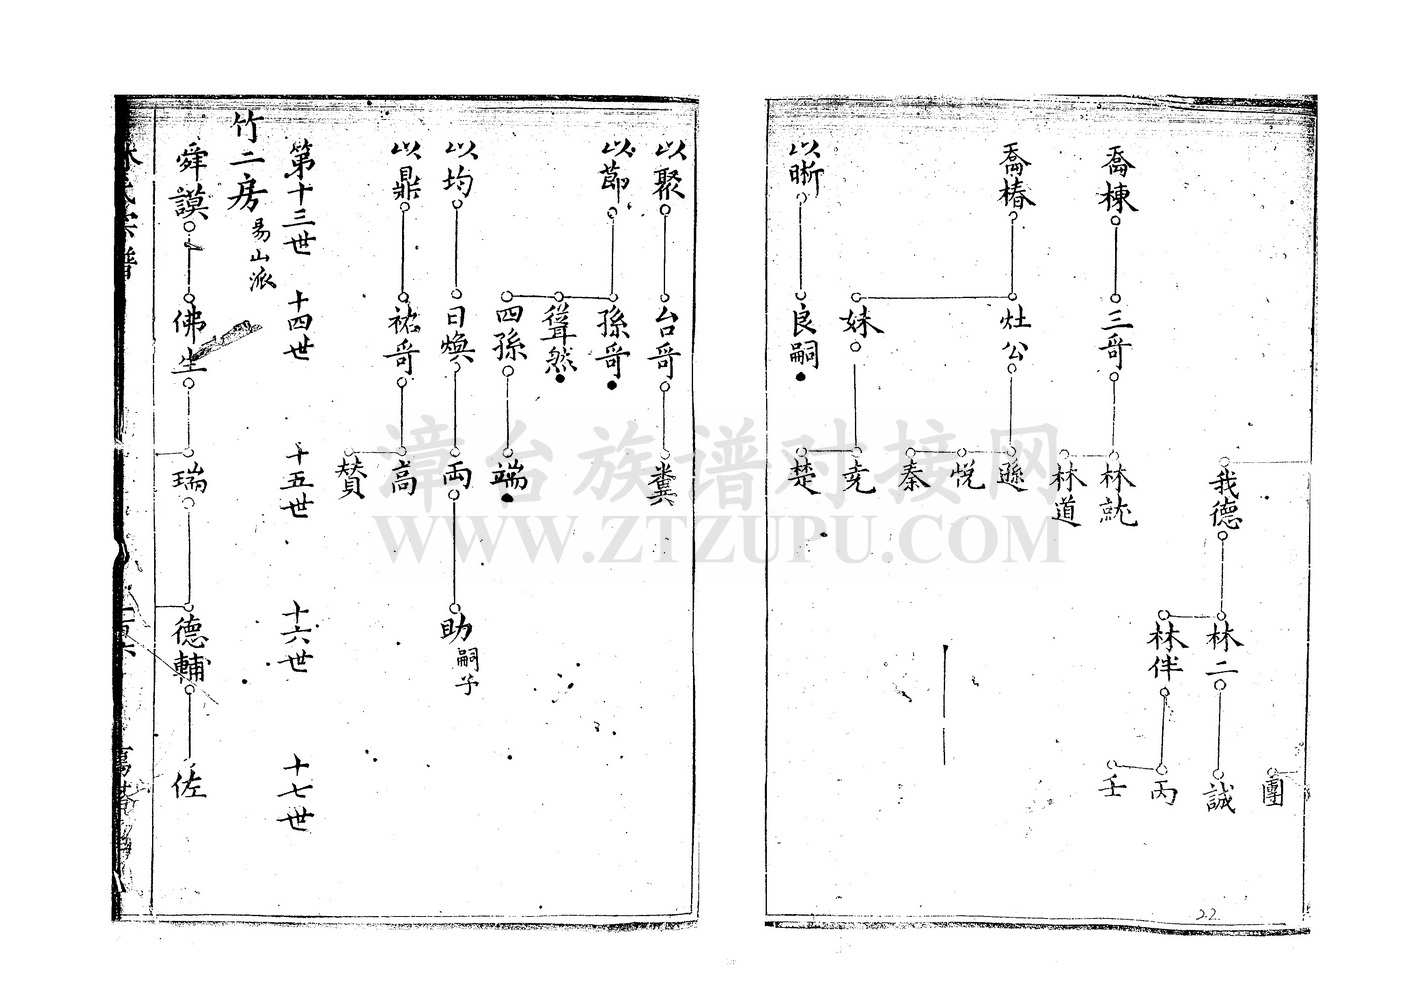 團
我德
林二
誠
林伴
丙
壬
喬棟
三哥
林就
林道
喬椿
灶公
遜
悅
秦
妹
堯
楚
以晰
良嗣
以聚
台哥
糞
以節
孫哥
聳然
四孫
端
以均
日煥
両
助
嗣子
以鼎
祐哥
高
賛
第十三世
十四世
十五世
十六世
十七世
竹二房
易山派
舜謨
佛生
瑞
德輔
佐
22
漳台族谱对接网
WWW.ZTZUPU.COM